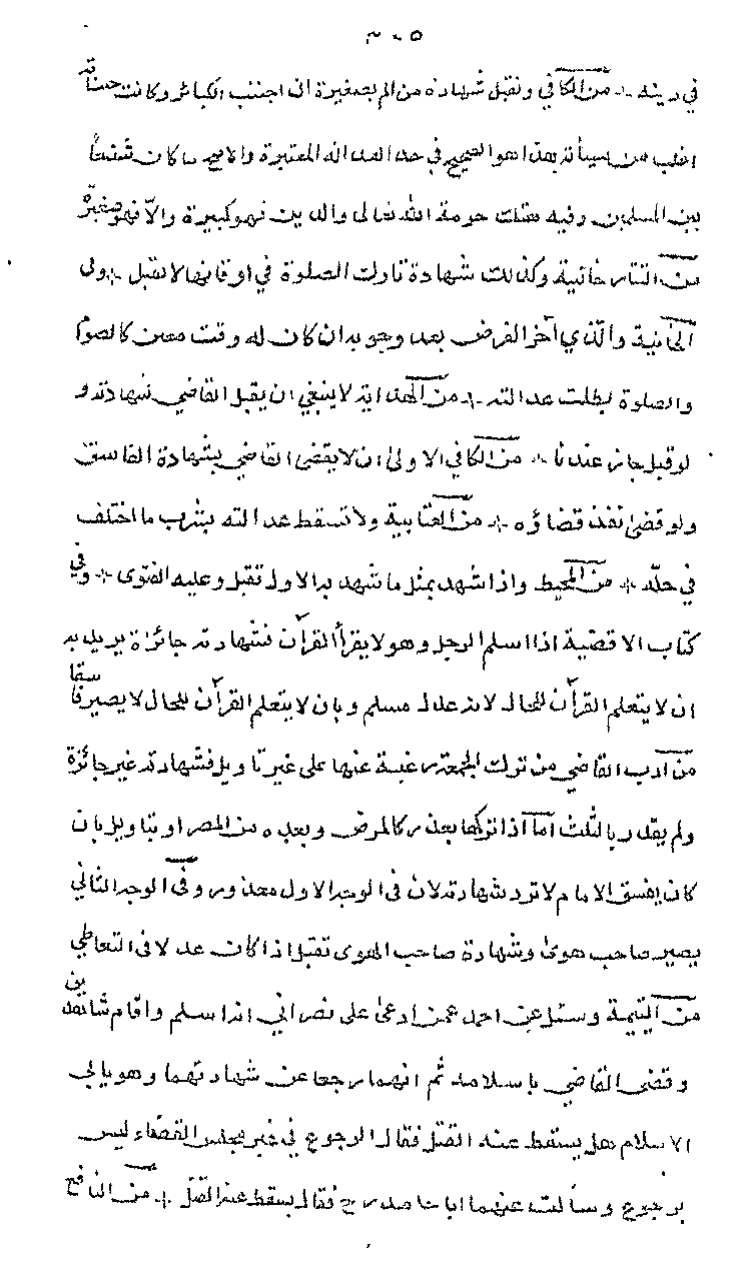 ٣٠٥
في دينه * من الكافي وتقبل شهادة من الم بصغيرة ان اجتنب الكبائر وكانت حسناته
اغلب من سيأته بهذا هو الصحيح في حد العدالة المعتبرة والاصح ما كان شنيعا
بين المسلمين وفيه هتك حرمة الله تعالى والدين فهو كبيرة والّا فهو صغيرة
من التتارخانية وكذلك شهادة تارك الصلوة في اوقاتها لا تقبل * وفى
الخانية والّذي آخر الفرض بعد وجوبه ان كان له وقت معين كالصوم
والصلوة بطلت عدالته * من الهداية لا ينبغي ان يقبل القاضي شهادته و
لو قبل جاز عندنا * من الكافي الاولى ان لا يقضى القاضي بشهادة الفاسق
ولو قضى نفذ قضاؤه * من العتابية ولا تسقط عدالته بشرب ما اختلف
في حلّه * من المحيط واذا شهد بمثل ما شهد به الاول تقبل وعليه الفتوى * وفي
كتاب الاقضية اذا اسلم الرجل وهو لا يقرأ القرآن فشهادته جائزة يريد به
ان لا يتعلم القرآن للحال لانه عدل مسلم وبان لا يتعلم القرآن للحال لا يصير فاسقا
من ادب القاضي من ترك الجمعة رغبة عنها على غير تاويل فشهادته غير جائزة
ولم يقدر بالثلث اما اذا تركها بعذر كالمرض وبعده من المصر او بتاويل بان
كان يفسق الامام لا ترد شهادته لان فى الوجه الاول معذور وفى الوجه الثاني
يصير صاحب هوى وشهادة صاحب الهوى تقبل اذا كان عدلا فى التعاطي
من اليتيمة وسئل عن احمد عمن ادعى على نصراني انه اسلم واقام شاهدين
وقضى القاضي باسلامه ثم انهما رجعا عن شهادتهما وهو يابى
الاسلام هل يسقط عنه القتل فقال الرجوع في غير مجلس القضاء ليس
برجوع وسألت عنهما ابا حامد رح فقال يسقط عنه القتل * من النافع